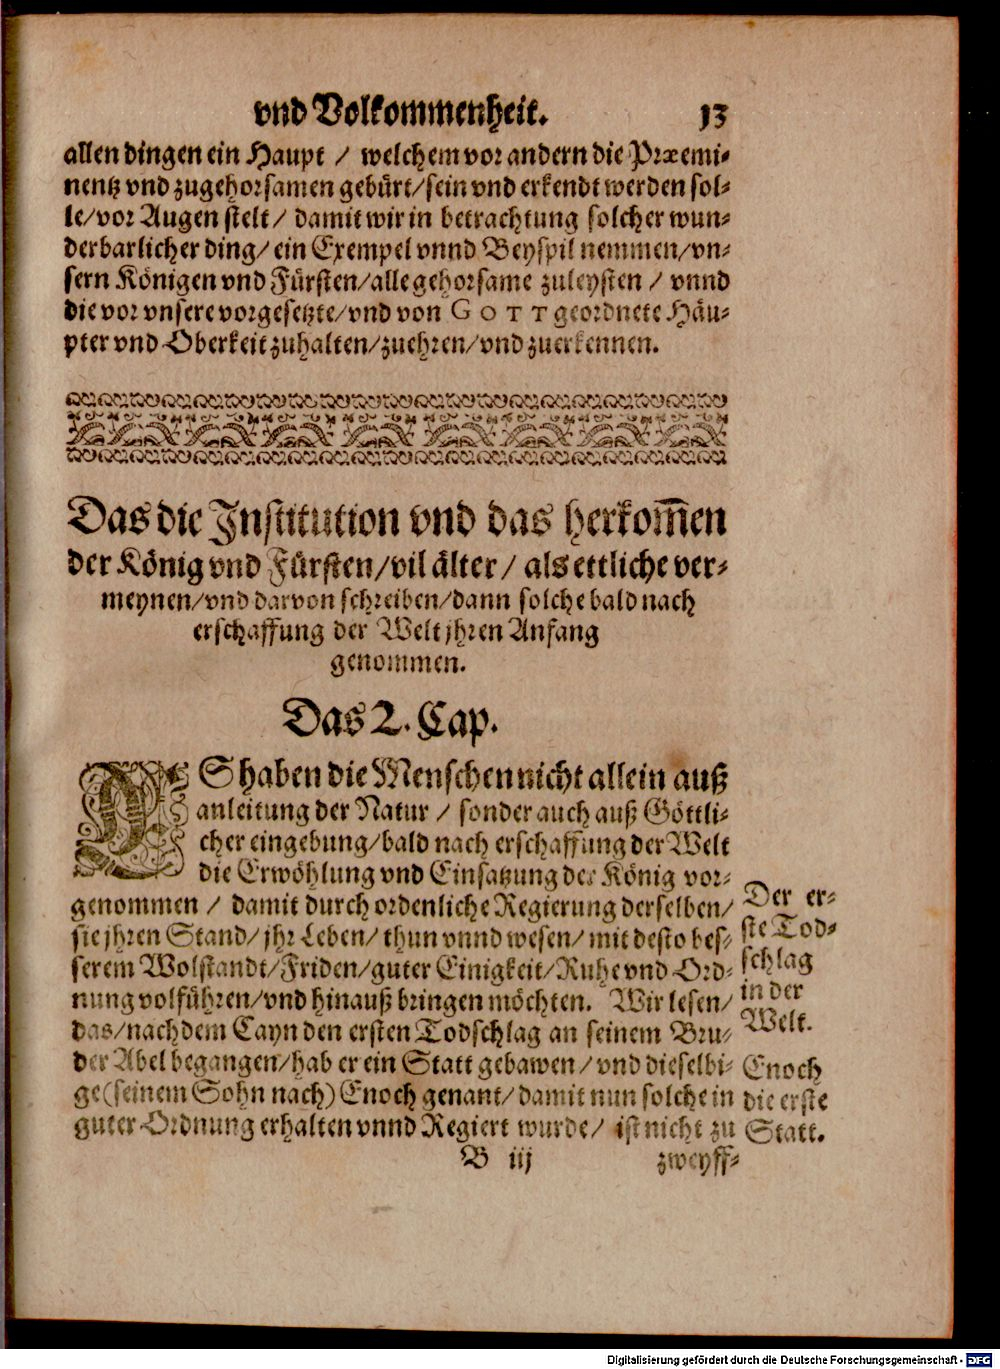 vnd Volkommenheit. 13
allen dingen ein Haupt / welchem vor andern die Præemi-
nentz vnd zugehorsamen gebürt/sein vnd erkendt werden sol-
le/vor Augen stelt/ damit wir in betrachtung solcher wun-
derbarlicher ding/ ein Exempel vnnd Beyspil nemmen/vn-
sern Königen vnd Fürsten/alle gehorsame zuleysten / vnnd
die vor vnsere vorgesetzte/vnd von GOTT geordnete Häu-
pter vnd Oberkeit zuhalten/zuehren/vnd zuerkennen.
Das die Institution vnd das herkom̅en
der König vnd Fürsten/vil älter/ als ettliche ver-
meynen/vnd darvon schreiben/dann solche bald nach
erschaffung der Welt jhren Anfang
genommen.
Das 2. Cap.
ES haben die Menschen nicht allein auß
anleitung der Natur / sonder auch auß Göttli-
cher eingebung/bald nach erschaffung der Welt
die Erwöhlung vnd Einsatzung der König vor-
genommen / damit durch ordenliche Regierung derselben/
sie jhren Stand/jhr Leben/ thun vnnd wesen/ mit desto bes-
serem Wolstandt/Friden/guter Einigkeit/Ruhe vnd Ord-
nung volführen/vnd hinauß bringen möchten. Wir lesen/
das/nach dem Cayn den ersten Todschlag an seinem Bru-
der Abel begangen/hab er ein Statt gebawen/vnd dieselbi-
ge(seinem Sohn nach) Enoch genant/damit nun solche in
guter Ordnung erhalten vnnd Regiert wurde/ ist nicht zu
Der er-
ste Tod-
schlag
in der
Welt.
Enoch
die erste
Statt.
B iij zweyff-
Digitalisierung gefördert durch die Deutsche Forschungsgemeinschaft - DFG